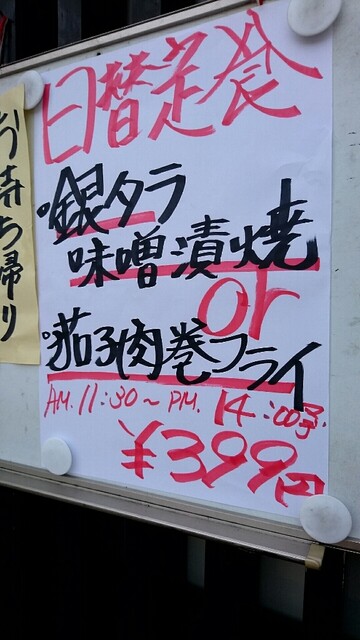 日替定食
・銀タラ
味噌漬焼
or
・茄子肉巻フライ
AM.11:30~PM.14:00まで
¥399円
お持ち帰り